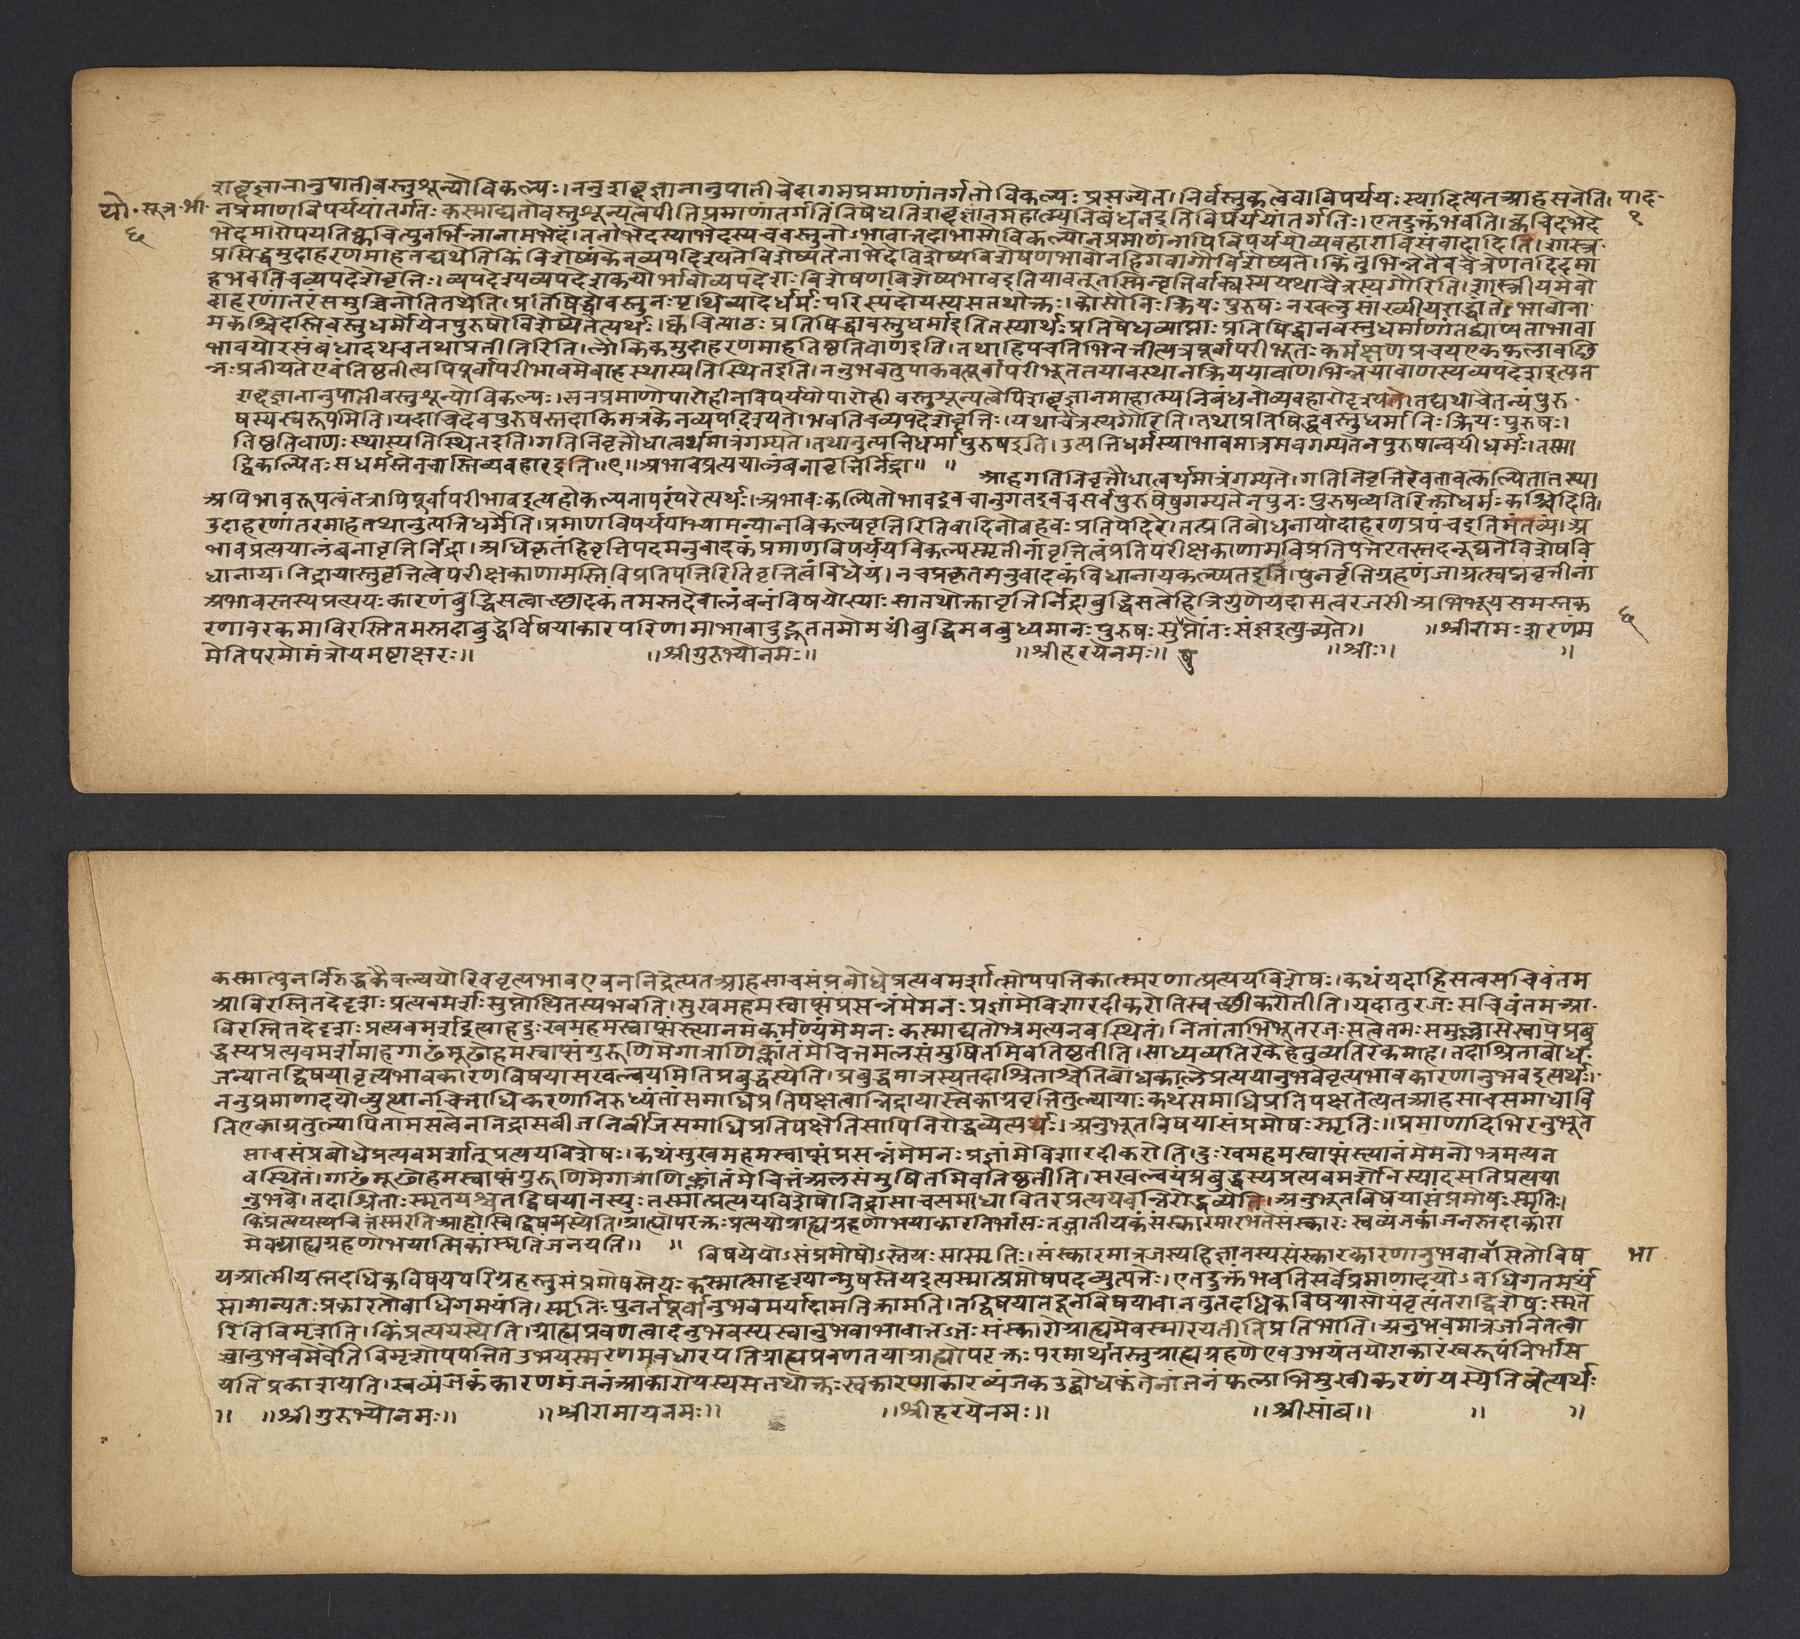 शब्दज्ञानानुपातीवस्तुशून्योविकल्पः।ननुशब्दज्ञानानुपातीचेदागमप्रमाणांतर्गतोविकल्पः प्रसज्येत।निर्वस्तुकत्वेवाविपर्ययः स्यादित्यतआहसनेति। पाद॰
यो॰सूत्र॰भा॰ नप्रमाणविपर्ययांतर्गतः कस्माद्यतोवस्तुशून्यत्वेपीतिप्रमाणांतर्गतिंनिषेधतिशब्दज्ञानमहात्म्यनिबंधनइतिविपर्ययांतर्गतिः।एतदुक्तंभवति।क्वचिदभेदे १
६ भेदमारोपयतिक्वचित्पुनर्भिन्नानामभेदं।ततोभेदस्याभेदस्यचवस्तुनोऽभावात्तदाभासोविकल्पोनप्रमाणंनापिविपर्ययोव्यवहाराविसंवादादिति।शास्त्र॰
प्रसिद्धमुदाहरणमाहतद्यथेतिकिंविशेष्यंकेनव्यपदिश्यतेविशेष्यतेनाभेदेविशेष्यविशेषणभावोनहिगवागौर्विशेष्यते।किंतुभिन्नेनैवचैत्रेणतदिदमा
हभवतिचव्यपदेशेवृत्तिः।व्यपदेश्यव्यपदेशकयोर्भावोव्यपदेशः।विशेषणविशेष्यभावइतियावत्तस्मिन्वृत्तिर्वाक्यस्ययथाचैत्रस्यगौरिति।शास्त्रीयमेवो
दाहरणांतरंसमुच्चिनोतितथेति।प्रतिषिद्धावस्तुनः पृथिव्यादेर्धर्मः परिस्पंदोयस्यसतथोक्तः।कोसौनिःक्रियः पुरुषः नखलुसांख्यीयराद्धांतेऽभावोना
मकश्चिदस्तिवस्तुधर्मोयेनपुरुषोविशेष्येतेत्यर्थः।क्वचित्पाठः प्रतिषिद्धावस्तुधर्माइतितस्यार्थः प्रतिषेधव्याप्ताः प्रतिषिद्धानवस्तुधर्माणांतद्व्याप्यताभावा
भावयोरसंबंधादथचतथाप्रतीतिरिति।लौकिकमुदाहरणमाहतिष्ठतिबाणइति।तथाहिपचतिभिनत्तीत्यत्रपूर्वापरीभूतः कर्मक्षणप्रचयएकफलावछि
न्नः प्रतीयतेएवंतिष्ठतीत्यपिपूर्वापरीभावमेवाहस्थास्यतिस्थितइति।ननुभवतुपाकवत्पूर्वापरीभूततयावस्थानक्रिययाबाणभिन्नयाबाणस्यव्यपदेशइत्यत
शब्दज्ञानानुपातीवस्तुशून्योविकल्पः।सनप्रमाणोपारोहीनविपर्ययोपारोही वस्तुशून्यत्वेपिशब्दज्ञानमाहात्म्यनिबंधनोव्यवहारोदृश्यते।तद्यथाचैतन्यंपुरु॰
षस्यस्वरूपमिति।यदाचितिरेवपुरुषस्तदाकिमत्रकेनव्यपदिश्यते।भवतिचव्यपदेशेवृत्तिः।यथाचैत्रस्यगौरिति।तथाप्रतिषिद्धवस्तुधर्मानिःक्रियः पुरुषः।
तिष्ठतिबाणः स्थास्यतिस्थितइति।गतिनिवृत्तौधात्वर्थमात्रंगम्यते।तथानुत्पत्तिधर्मापुरुषइति।उत्पत्तिधर्मस्याभावमात्रमवगम्यतेनपुरुषान्वयीधर्मः।तस्मा
द्विकल्पितः सधर्मस्तेनचास्तिव्यवहारइति॥९॥अभावप्रत्ययालंबनावृत्तिर्निद्रा॥ ॥ आहगतिनिवृत्तौधात्वर्थमात्रंगम्यते।गतिनिवृत्तिरेवतावत्कल्पितातस्या
अपिभावरूपत्वंतत्रापिपूर्वापरीभावइत्यहोकल्पनापरंपरेत्यर्थः।अभावः कल्पितोभावइवचानुगतइवचसर्वपुरुषेषुगम्यतेनपुनः पुरुषव्यतिरिक्तोधर्मः कश्चिदिति।
उदाहरणांतरमाहतथानुत्पत्तिधर्मेति।प्रमाणविपर्ययाभ्यामन्यानविकल्पवृत्तिरितिवादिनोबहवः प्रतिपेदिरे।तत्प्रतिबोधनायोदाहरणप्रपंचइतिमंतव्यं।अ
भावप्रत्ययालंबनावृत्तिर्निद्रा।अधिकृतंहिवृत्तिपदमनुवादकंप्रमाणविपर्ययविकल्पस्मृतीनांवृत्तित्वंप्रतिपरीक्षकाणामविप्रतिपत्तेरतस्तदनूद्यतेविशेषवि
धानाय।निद्रायास्तुवृत्तित्वेपरीक्षकाणामस्तिविप्रतिपत्तिरितिवृत्तित्वंविधेयं।नचप्रकृतमनुवादकंविधानायकल्प्यतइति।पुनर्वृत्तिग्रहणंजाग्रत्स्वप्नवृत्तीनां
अभावस्तस्यप्रत्ययः कारणंबुद्धिसत्वाच्छादकंतमस्तदेवालंबनंविषयोस्याः सातथोक्तावृत्तिर्निद्राबुद्धिसत्वेहित्रिगुणेयदासत्वरजसीअभिभूयसमस्तक ६
रणावरकमाविरस्तितमस्तदाबुद्धेर्विषयाकारपरिणामाभावादुद्भूततमोमयींबुद्धिमवबुध्यमानः पुरुषः सुषुप्तोंतः संज्ञइत्युच्यते॥ ॥श्रीरामः शरणंम
मेतिपरमोमंत्रोयमष्टाक्षरः॥ ॥श्रीगुरुभ्योनमः॥ ॥श्रीहरयेनमः॥ षु ॥श्रीः॥ ॥
कस्मात्पुनर्निरुद्धकैवल्ययोरिववृत्त्यभावएवननिद्रेत्यतआहसाचसंप्रबोधेप्रत्यवमर्शात्सोपपत्तिकात्स्मरणात्प्रत्ययविशेषः।कथंयदाहिसत्वसचिवंतम
आविरस्तितदेदृशः प्रत्यवमर्शः सुप्तोत्थितस्यभवति।सुखमहमस्वाप्संप्रसन्नंमेमनः प्रज्ञांमेविशारदीकरोतिस्वच्छीकरोतीति।यदातुरजः सचिवंतमआ॰
विरस्तितदेदृशः प्रत्यवमर्शइत्याहदुःखमहमस्वाप्संस्त्यानमकर्मण्यंमेमनः कस्माद्यतोभ्रमत्यनवस्थितं।नितांताभिभूतरजः सत्वेतमः समुल्लासेस्वापेप्रबु
द्धस्यप्रत्यवमर्शमाहगाढंमूढोहमस्वाप्संगुरूणिमेगात्राणिक्लांतंमेचित्तमलसंमुषितमिवतिष्ठतीति।साध्यव्यतिरेकेहेतुव्यतिरेकमाह।तदाश्रिताबोध॰
जन्यातद्विषयावृत्त्यभावकारणविषयासखल्वयमितिप्रबुद्धस्येति।प्रबुद्धमात्रस्यतदाश्रिताश्चेतिबोधकालेप्रत्ययानुभवेवृत्त्यभावकारणानुभवइत्यर्थः।
ननुप्रमाणादयोव्युत्थानचित्ताधिकरणानिरुध्यंतांसमाधिप्रतिपक्षत्वान्निद्रायास्त्वेकाग्रवृत्तितुल्यायाः कथंसमाधिप्रतिपक्षतेत्यतआहसाचसमाधावि
तिएकाग्रतुल्यापितामसत्वेननिद्रासबीजनिर्बीजसमाधिप्रतिपक्षेतिसापिनिरोद्धव्येत्यर्थः।अनुभूतविषयासंप्रमोषः स्मृतिः॥प्रमाणादिभिरनुभूते
साचसंप्रबोधेप्रत्यवमर्शात्प्रत्ययविशेषः।कथंसुखमहमस्वाप्संप्रसन्नंमेमनः प्रज्ञांमेविशारदीकरोति।दुःखमहमस्वाप्संस्त्यानंमेमनोभ्रमत्यन
वस्थितं।गाढंमूढोहमस्वाप्संगुरूणिमेगात्राणिक्लांतंमेचित्तंअलसंमुषितमिवतिष्ठतीति।सखल्वयंप्रबुद्धस्यप्रत्यवमर्शोनस्यादसतिप्रत्यया
नुभवे।तदाश्रिताः स्मृतयश्चतद्विषयानस्युः तस्मात्प्रत्ययविशेषोनिद्रासाचसमाधावितरप्रत्ययवन्निरोद्धव्येति।अनुभूतविषयासंप्रमोषः स्मृतिः।
किंप्रत्ययस्यचित्तंस्मरतिआहोस्विद्विषयस्येति।ग्राह्योपरक्तः प्रत्ययोग्राह्यग्रहणोभयाकारनिर्भासः तज्जातीयकंसंस्कारमारभतेसंस्कारः स्वव्यंजकांजनस्तदाकारा
मेवग्राह्यग्रहणोभयात्मिकांस्मृतिंजनयति॥ ॥ विषयेयोऽसंप्रमोषोऽस्तेयः सास्मृतिः।संस्कारमात्रजस्यहिज्ञानस्यसंस्कारकारणानुभवावभासितोविष भा
यआत्मीयस्तदधिकविषयपरिग्रहस्तुसंप्रमोषस्तेयः कस्मात्सादृश्यान्मुषस्तेयइत्यस्मात्प्रमोषपदव्युत्पत्तेः।एतदुक्तंभवतिसर्वेप्रमाणादयोऽनधिगतमर्थं
सामान्यतः प्रकारतोवाधिगमयंति।स्मृतिः पुनर्नपूर्वानुभवमर्यादामतिक्रामति।तद्विषयातदूनविषयावानतुतदधिकविषयासोयंवृत्त्यंतराद्विशेषः स्मृते
रितिविमृशति।किंप्रत्ययस्येति।ग्राह्यप्रवणत्वादनुभवस्यस्वानुभवाभावात्तज्जः संस्कारोग्राह्यमेवस्मारयतीतिप्रतिभाति।अनुभवमात्रजनितत्वा
च्चानुभवमेवेतिविमृश्योपपत्तितउभयस्मरणमवधारयतिग्राह्यप्रवणतयाग्राह्योपरक्तः परमार्थतस्तुग्राह्यग्रहणेएवउभयंतयोराकारंस्वरूपंनिर्भास
यतिप्रकाशयति।स्वव्यंजकंकारणमंजनंआकारोयस्यसतथोक्तः स्वकारणाकारव्यंजकउद्बोधकंतेनांजनंफलाभिमुखीकरणंयस्येतिवेत्यर्थः
॥ ॥श्रीगुरुभ्योनमः॥ ॥श्रीरामायनमः॥ ॥श्रीहरयेनमः॥ ॥श्रीसांब॥ ॥ ॥